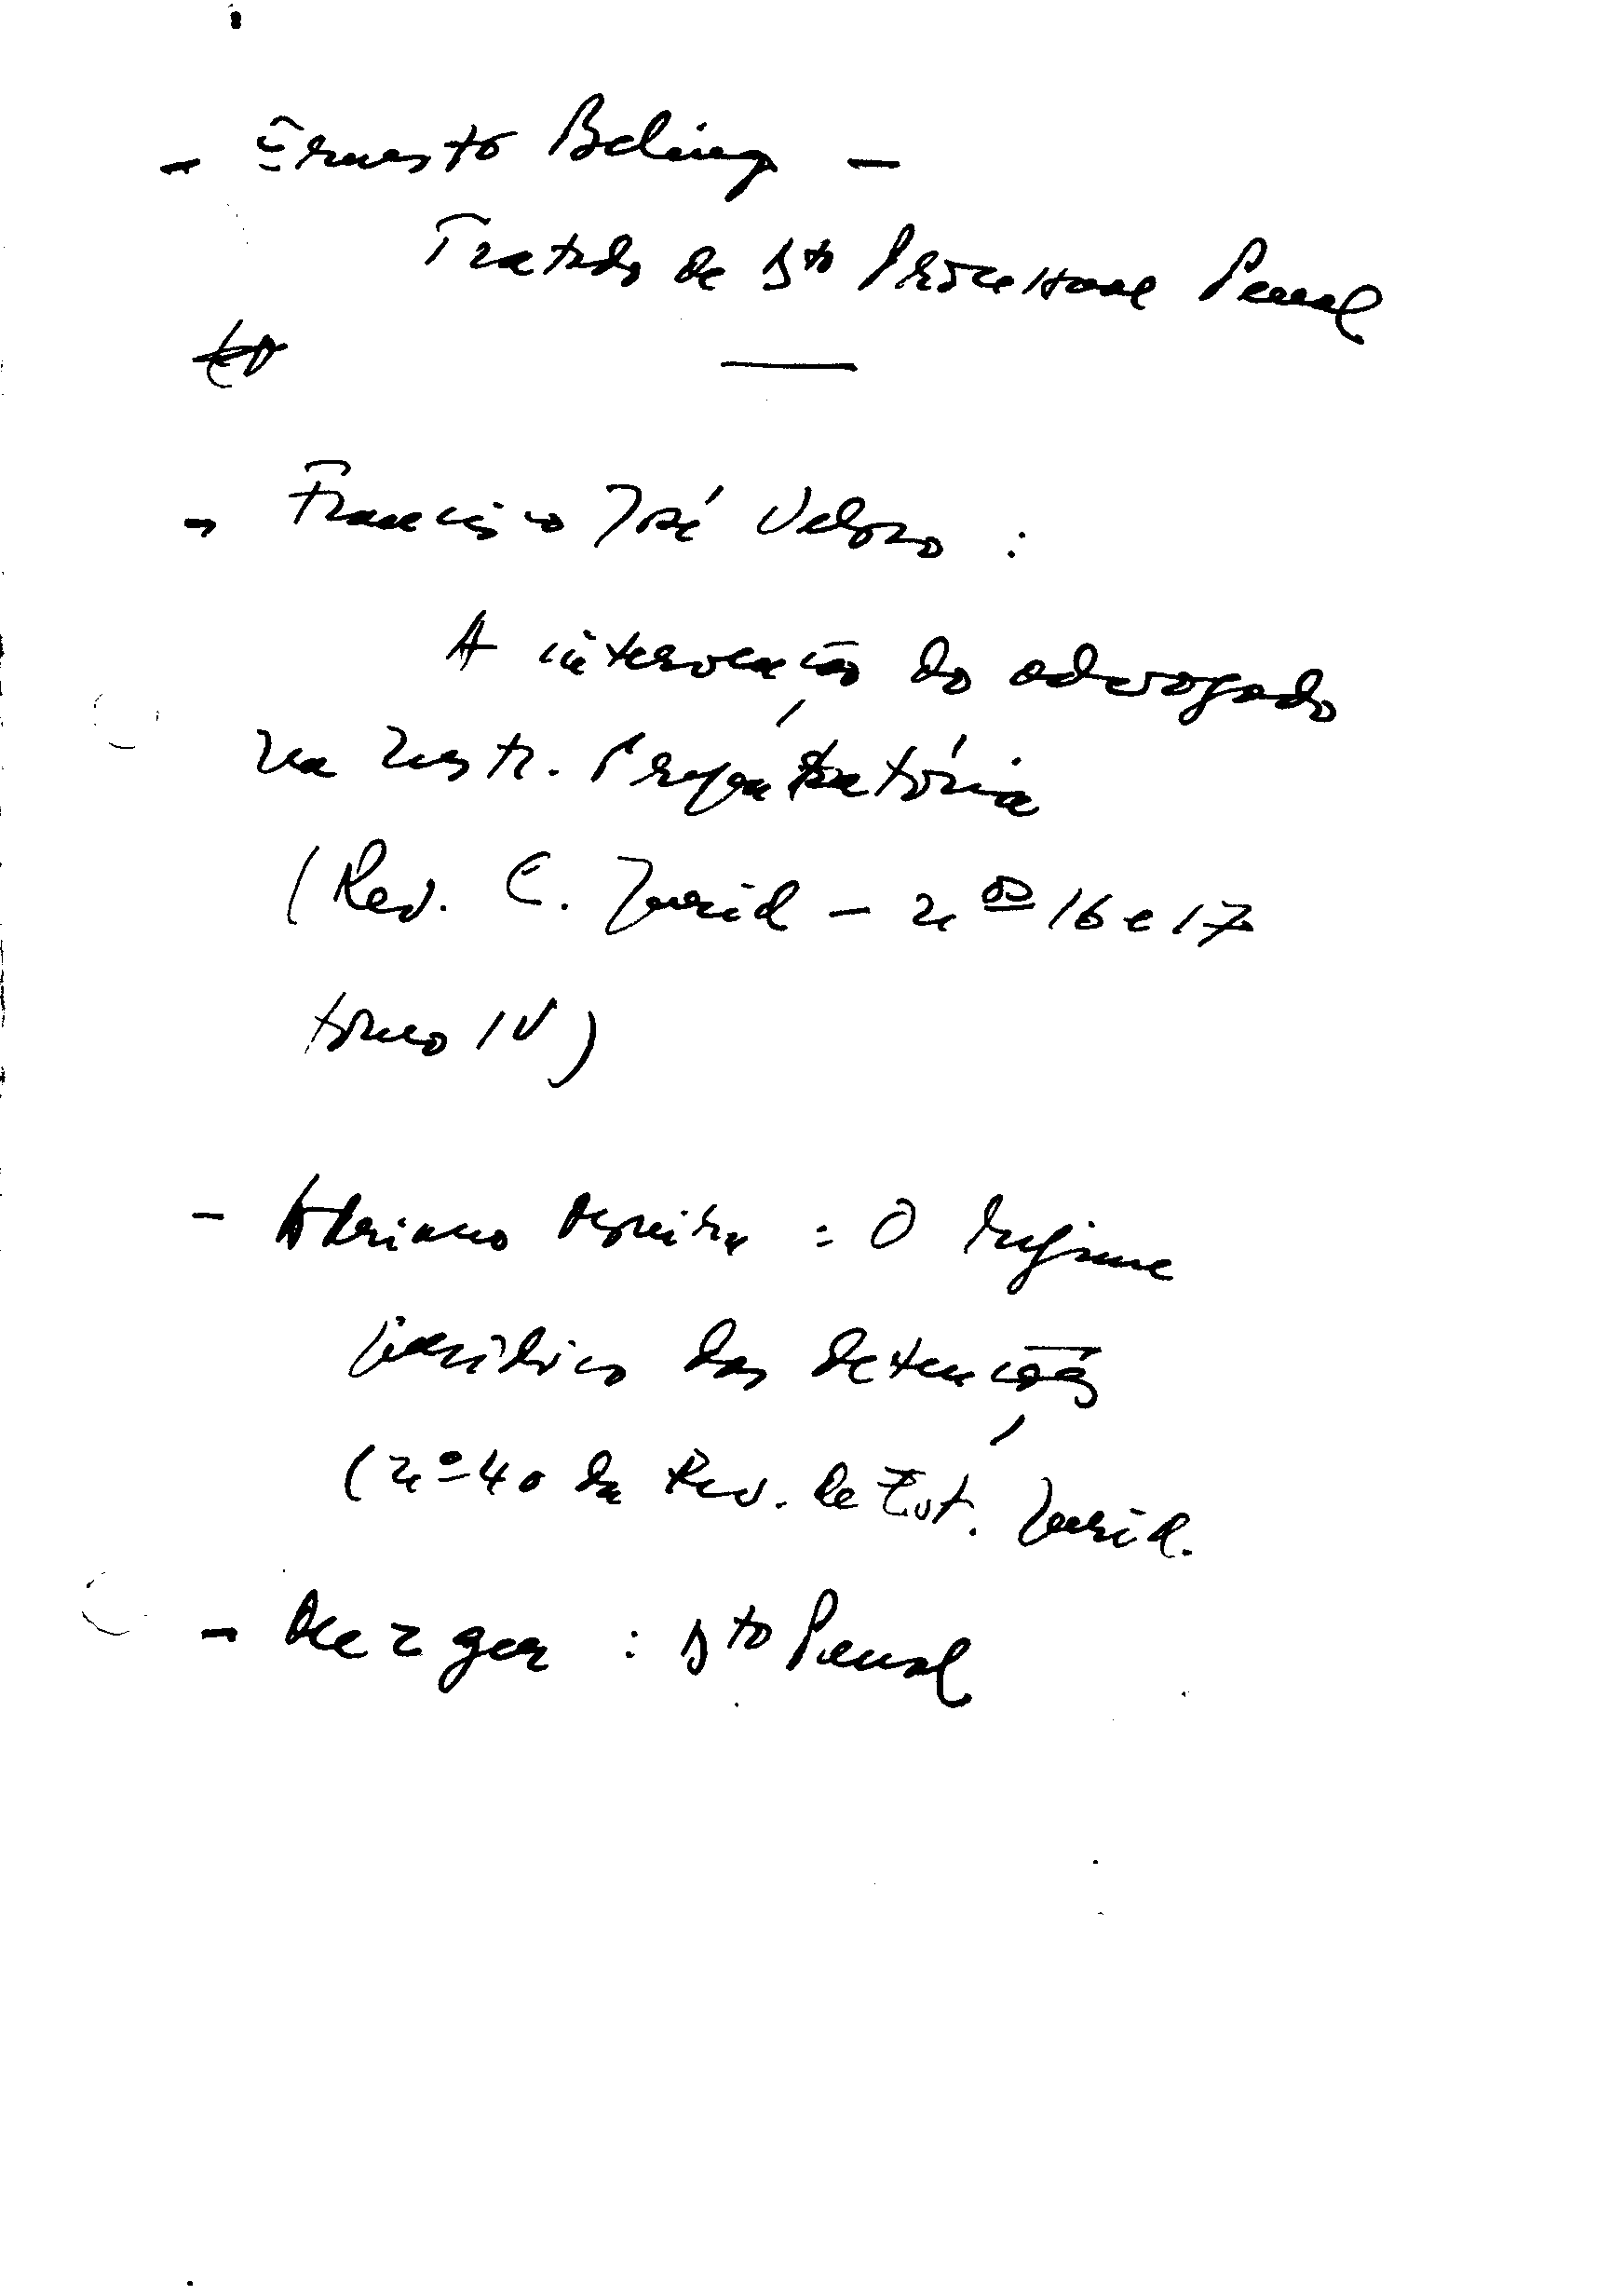 - Ernesto Beling -
Tratado de Dto Processual Penal
- Francisco José Veloso :
A intervenção do advogado
na Instr. Preparatória
(Rev. E. Juríd - nos 16 e 17
tomo IV)
- Adriano Moreira : O regime
jurídico das detenções
(nº 40 da Rev. de Est. Juríd.
- Mezger : Dto Penal